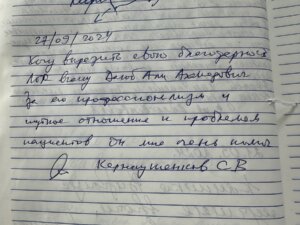 27/09/2024
Хочу выразить свою благодарность
ЛОР врачу Али Ахмедович
За его профессионализм и
чуткое отношение к проблемам
пациентов Он мне очень помог
С В